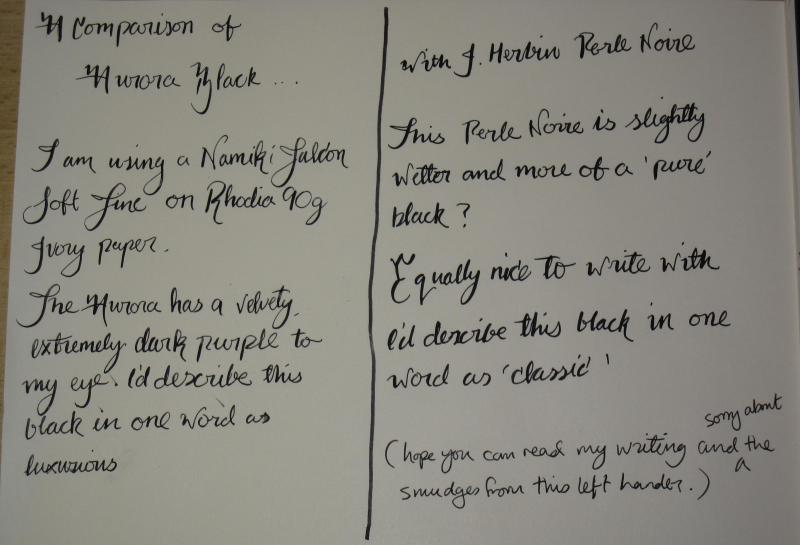 A Comparison of
Aurora Black...
I am using a Namiki Falcon
Soft Fine on Rhodia 90g
Ivory paper.
The Aurora has a velvety,
extremely dark purple to
my eye. I'd describe this
black in one word as
luxurious
with J. Herbin Perle Noire
This Perle Noire is slightly
wetter and more of a 'pure'
black?
Equally nice to write with
I'd descibe this black in one
word as 'classic'
sorry about
(hope you can read my writing and the
smudges from this left hander.)